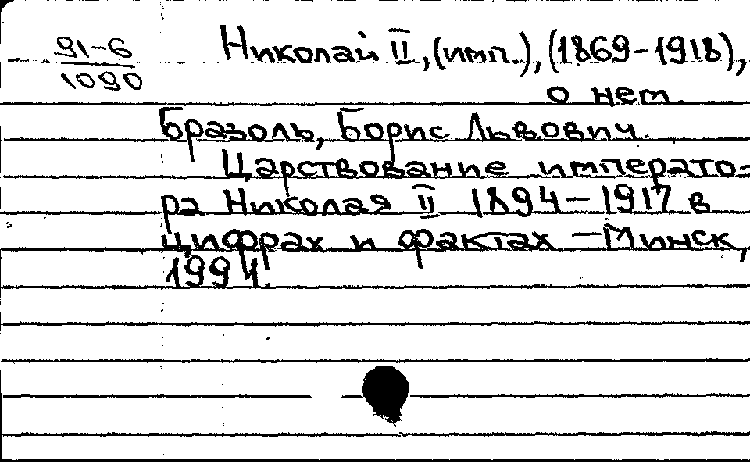 91-6
1090
Николай II, (имп.), (1869-1918),
о нем.
Бразоль, Борис Львович.
Царствование императо-
ра Николая II 1894-1917 в
цифрах и фактах -Минск,
1991.